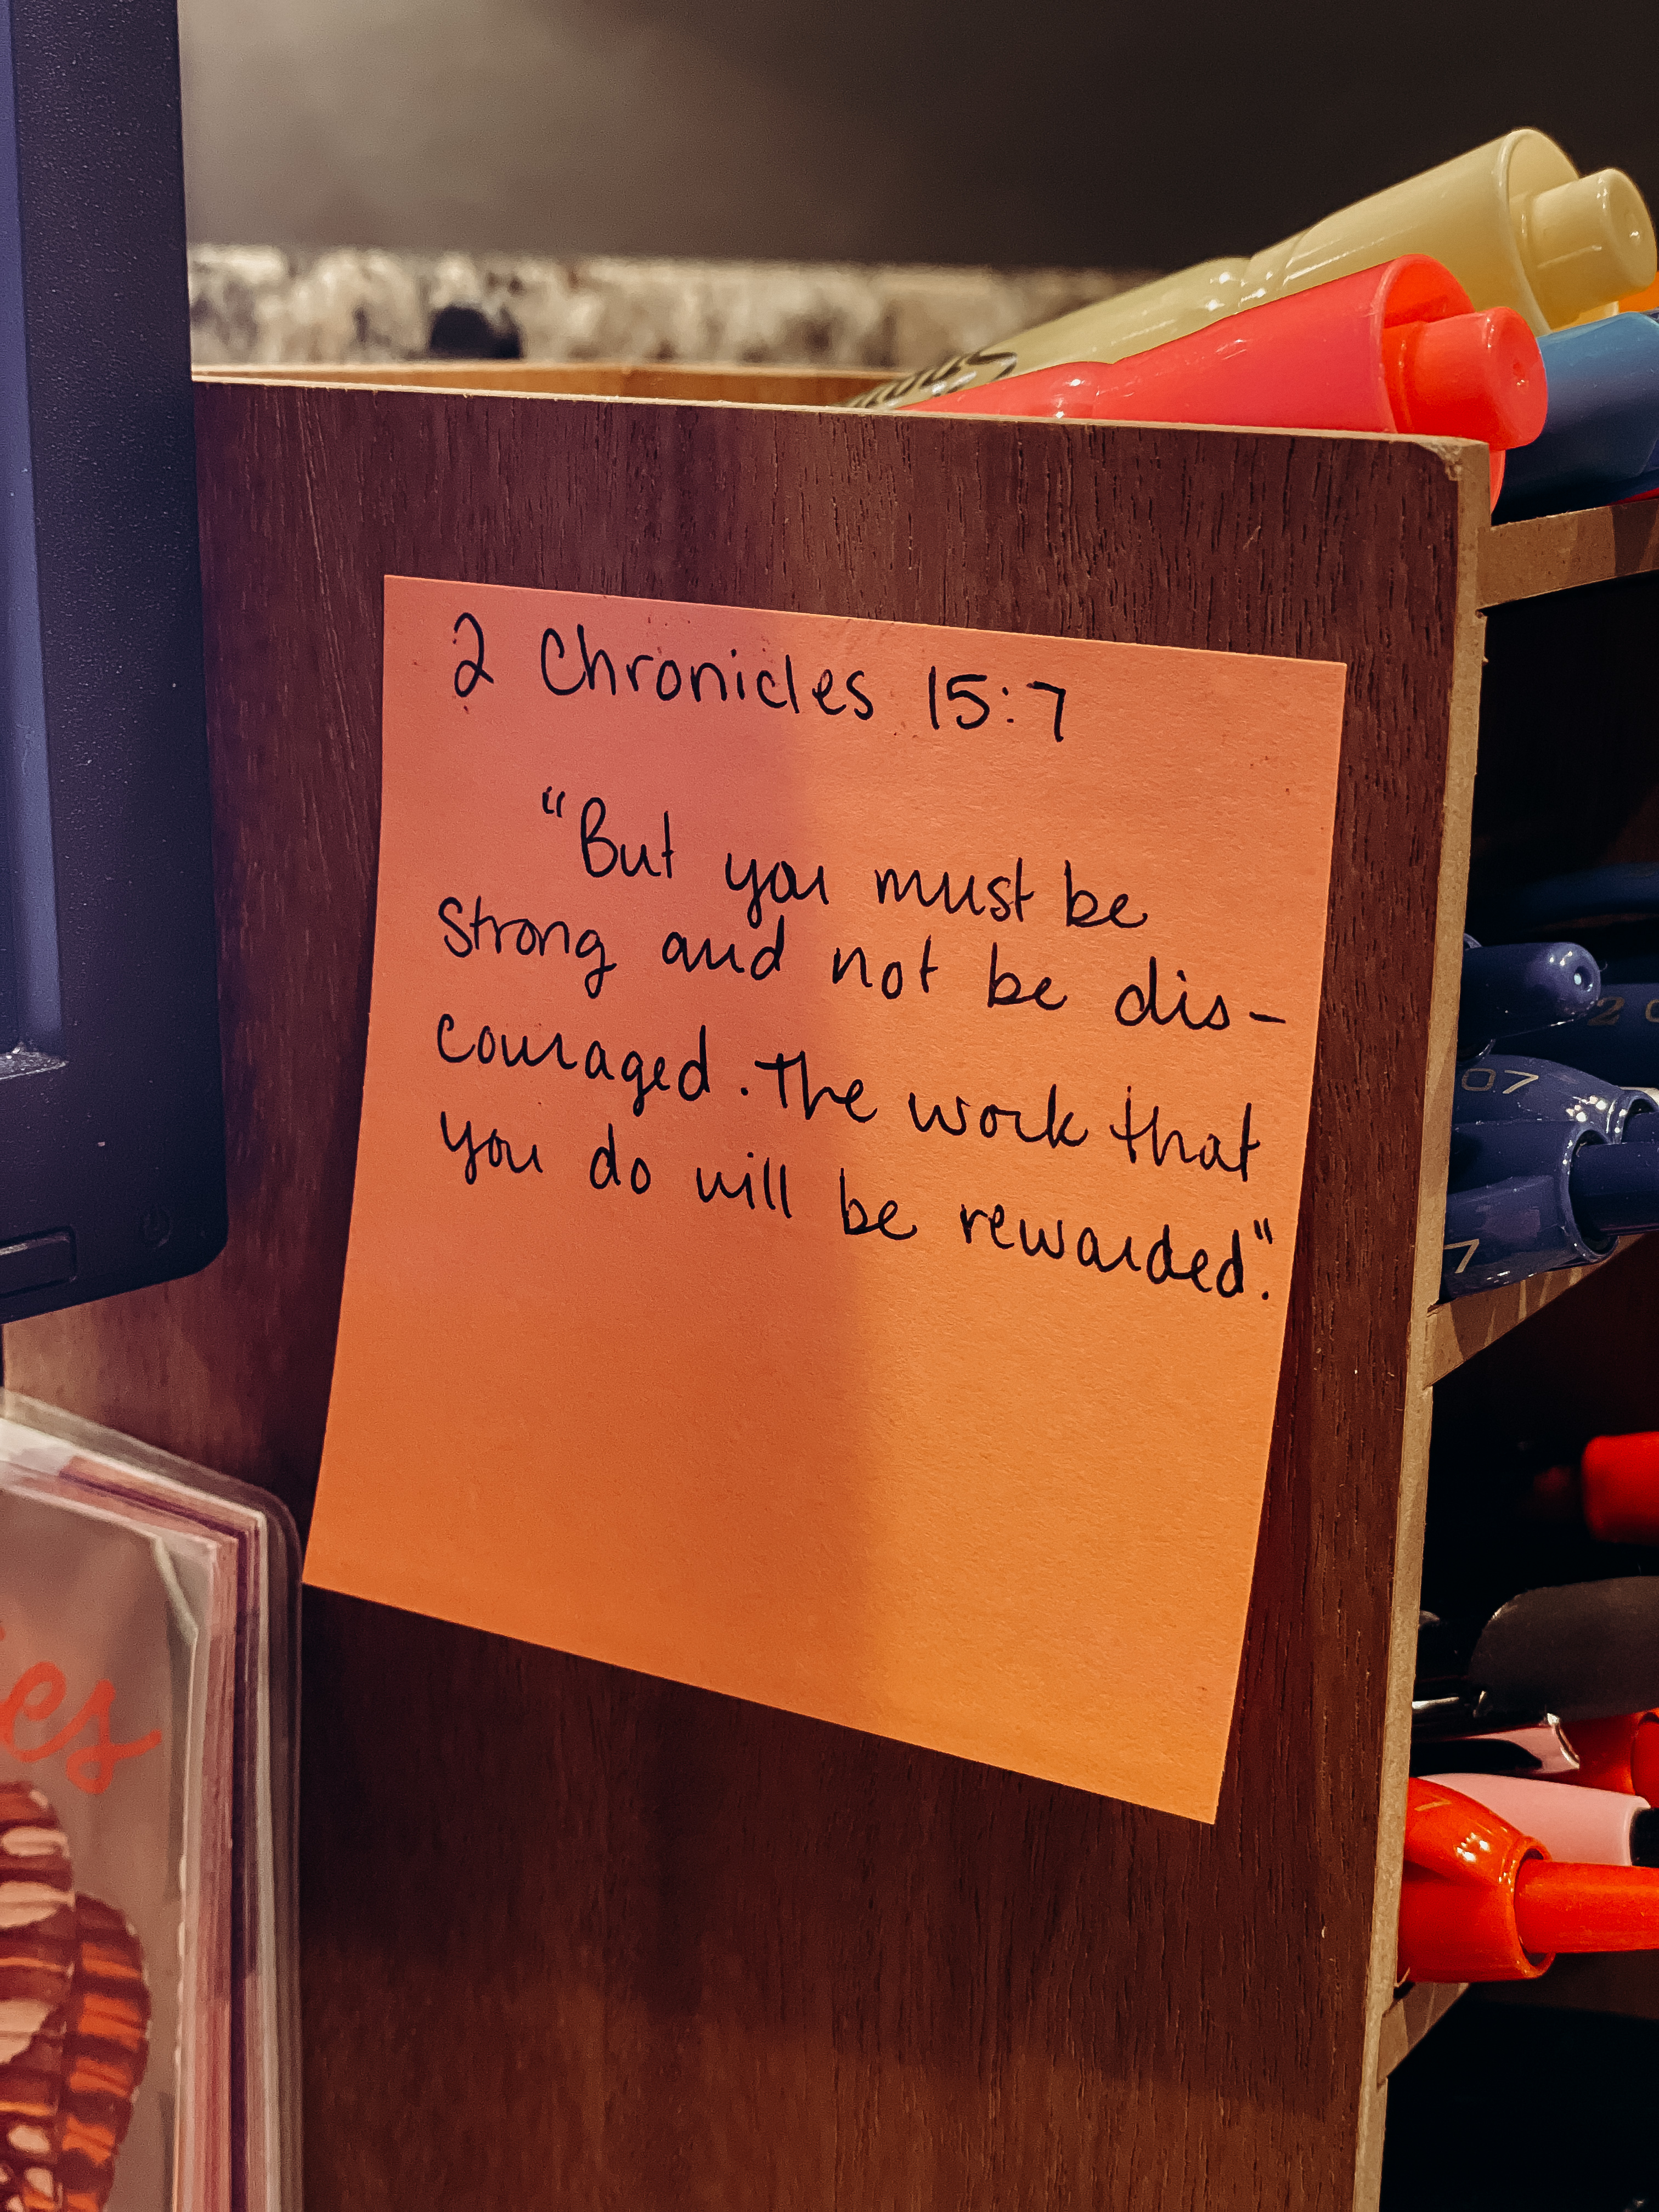 2 Chronicles 15:7
"But you must be
strong and not be dis-
couraged. The work that
you do will be rewarded".
07
7
es